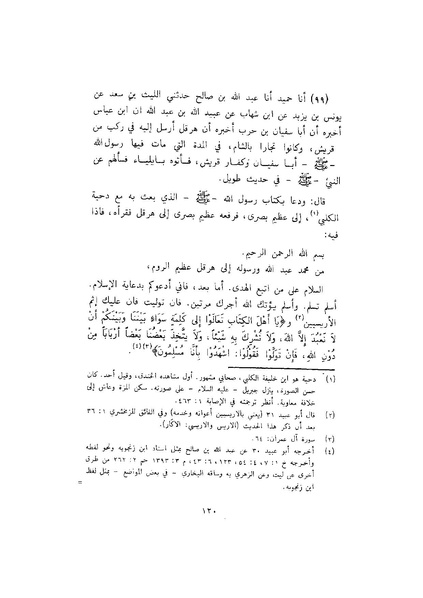 (٩٩) أنا حميد أنا عبد الله بن صالح حدثني الليث بن سعد عن
يونس بن يزيد عن ابن شهاب عن عبيد الله بن عبد الله ان ابن عباس
أخبره أن أبا سفيان بن حرب أخبره أن هرقل أرسل إليه في ركب من
قريش، وكانوا تجارا بالشام، في المدة التي مات فيها رسول الله
- ﷺ - أبا سفيان وكفار قريش، فأتوه بايلياء، فسألهم عن
النبي - ﷺ - في حديث طويل.
قال: ودعا بكتاب رسول الله - ﷺ - الذي بعث به مع دحية
الكلبي(١)، إلى عظيم بصرى، فرفعه عظيم بصرى إلى هرقل فقرأه، فاذا
فيه:
بسم الله الرحمن الرحيم.
من محمد عبد الله ورسوله إلى هرقل عظيم الروم؛
السلام على من اتبع الهدى. أما بعد، فاني أدعوكم بدعاية الإسلام.
أسلم تسلم. وأسلم يؤتك الله أجرك مرتين. فان توليت فان عليك إثم
الأريسيين(٢) و﴿يَا أَهْلَ الكِتَابِ تَعَالَوْا إِلَى كَلِمَةٍ سَوَاءٍ بَيْنَنَا وَبَيْنَكُمْ أَنْ
لَا نَعْبُدَ إِلَّا اللهَ، وَلَا نُشْرِكَ بِهِ شَيْئاً، وَلَا يَتَّخِذَ بَعْضُنَا بَعْضاً أَرْبَاباً مِنْ
دُونِ اللهِ، فَإِنْ تَوَلَّوْا فَقُولُوا: اشْهَدُوا بِأَنَّا مُسْلِمُونَ﴾(٣)(٤).
(١) دحية هو ابن خليفة الكلبي، صحابي مشهور. أول مشاهده الخندق، وقيل أحد. كان
حسن الصورة، ينزل جبريل - عليه السلام - على صورته. سكن المزة وعاش إلى
خلافة معاوية. أنظر ترجمته في الإصابة ١: ٤٦٣.
(٢) قال أبو عبيد ٣١ (يعني بالاريسيين أعوانه وخدمه) وفي الفائق للزمخشري ١: ٣٦
بعد أن ذكر هذا الحديث (الاريس والاريسي: الأكار).
(٣) سورة آل عمران: ٦٤.
(٤) أخرجه أبو عبيد ٣٠ عن عبد الله بن صالح بمثل اسناد ابن زنجويه ونحو لفظه
وأخرجه خ ١: ٧، ٤: ٥٤، ١٢٣، ٦: ٤٣، م ٣: ١٣٩٣ حم ٢: ٢٦٢ من طرق
أخرى عن ليث وعن الزهري به وساقه البخاري - في بعض المواضع - بمثل لفظ
ابن زنجويه.
١٢٠